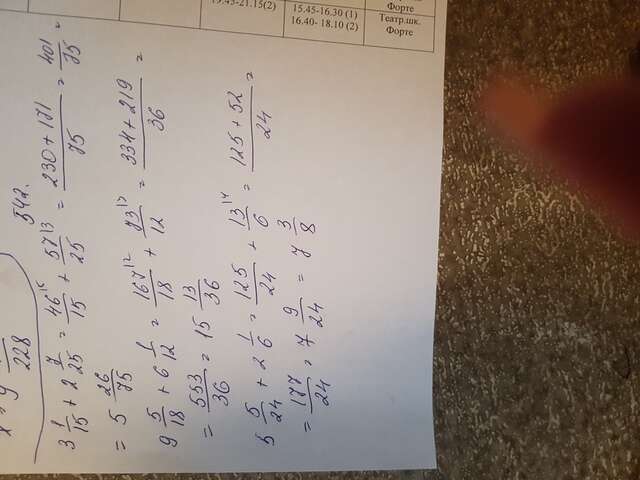 228
542.
3 1/15 + 2 7/25 = 46/15 + 57/25 = 230+171/75 = 401/75 =
= 5 26/75
9 5/18 + 6 1/12 = 167/18 + 73/12 = 334+219/36 =
= 553/36 = 15 13/36
5 5/24 + 2 1/6 = 125/24 + 13/6 = 125+52/24 =
= 177/24 = 7 9/24 = 7 3/8
15.45-16.30 (1)
16.40-18.10 (2)
Форте
Театр.шк.
Форте